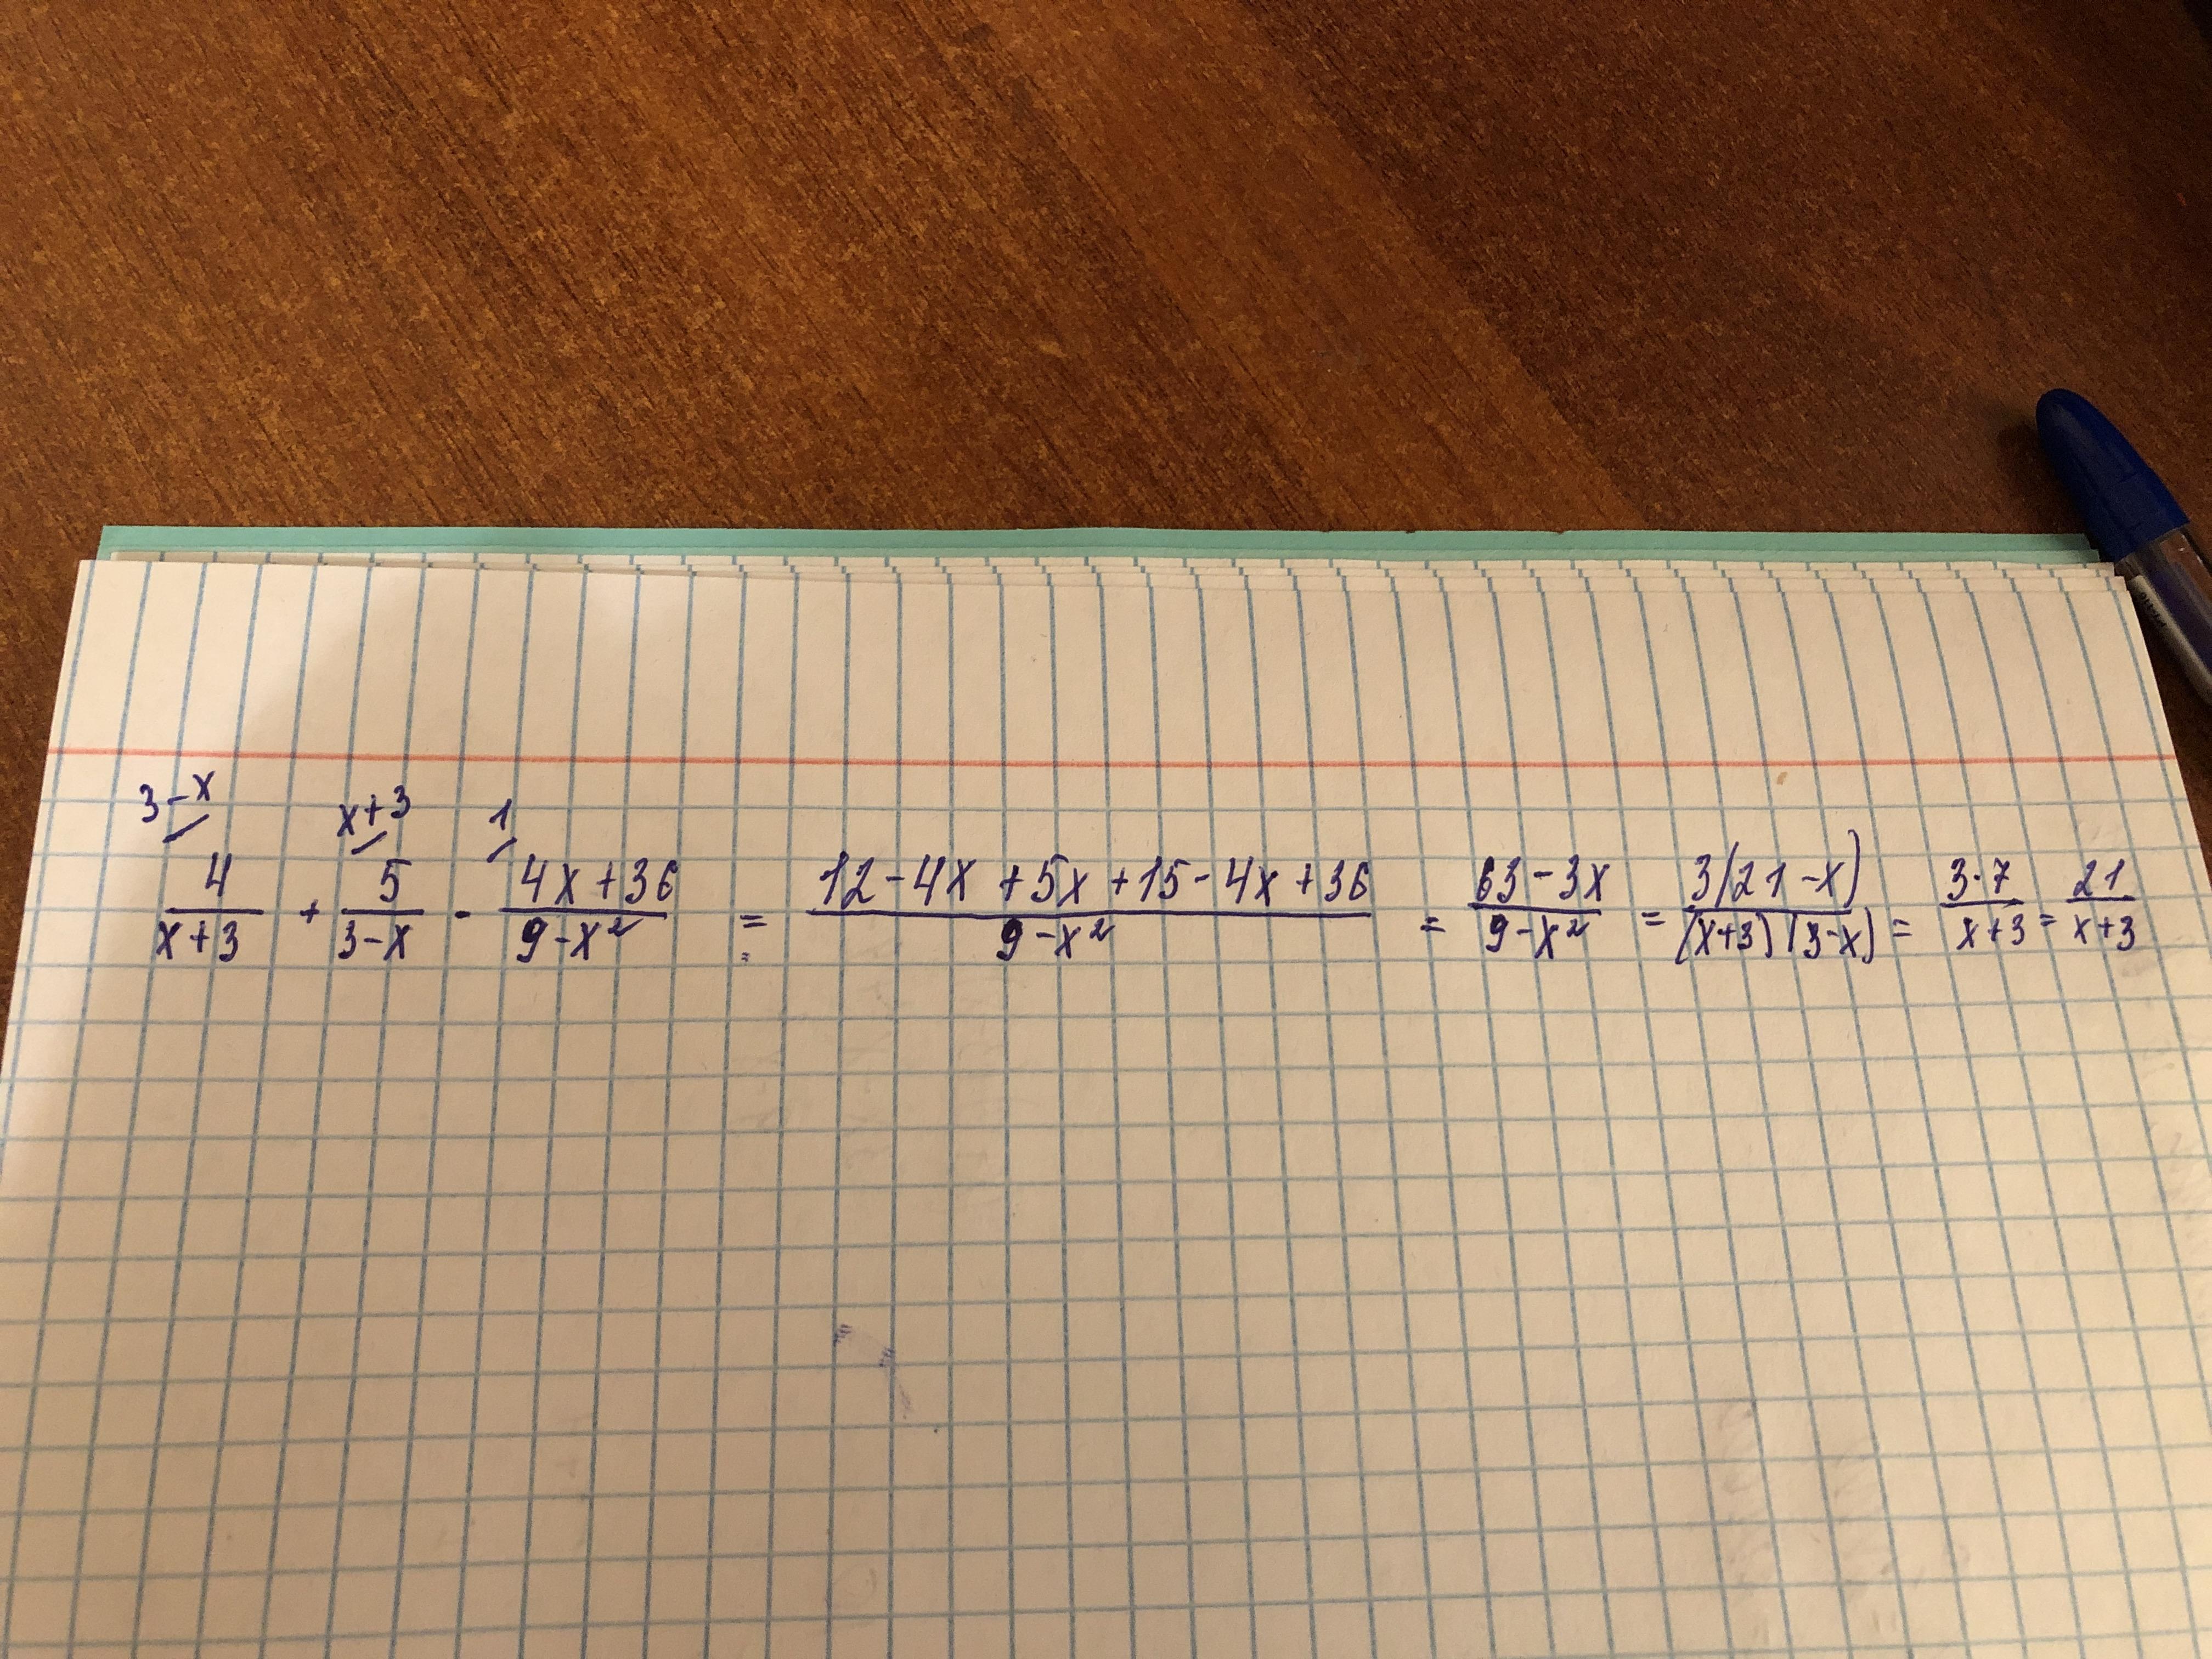 3-x x+3 1
4/(x+3) + 5/(3-x) - (4x+36)/(9-x²) = (12-4x+5x+15-4x+36)/(9-x²) = (63-3x)/(9-x²) = 3(21-x)/((x+3)(3-x)) = 3·7/(x+3) = 21/(x+3)